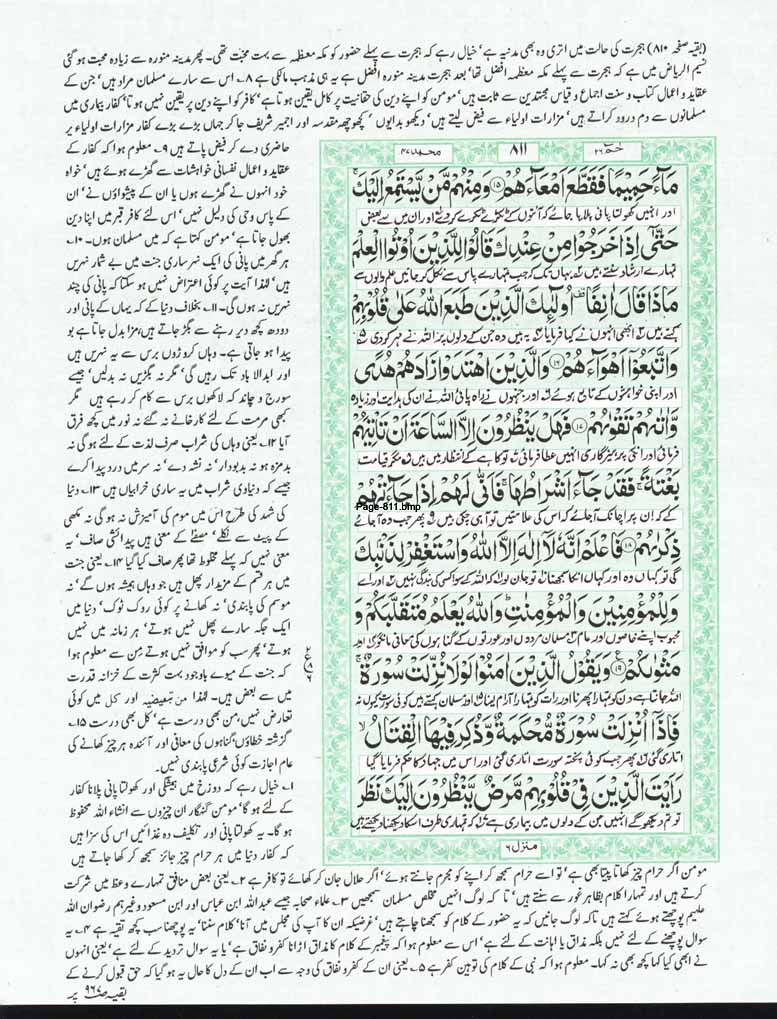 (بقیہ صفحہ ۸۱۰) ہجرت کی حالت میں اتری وہ بھی مدنیہ ہے' خیال رہے کہ ہجرت سے پہلے حضور کو مکہ معظمہ سے بہت محبت تھی۔ پھر مدینہ منورہ سے زیادہ محبت ہو گئی
نسیم الریاض میں ہے کہ ہجرت سے پہلے مکہ معظمہ افضل تھا' بعد ہجرت مدینہ منورہ افضل ہے یہ ہی مذہب مالکی ہے ۸۔ اس سے سارے مسلمان مراد ہیں' جن کے
عقاید و اعمال کتاب و سنت اجماع و قیاس مجتہدین سے ثابت ہیں' مومن کو اپنے دین کی حقانیت پر کامل یقین ہوتا ہے' کافر کو اپنے دین پر یقین نہیں ہوتا' کفار بیماری میں
مسلمانوں سے دم درود کراتے ہیں' مزارات اولیاء سے فیض لیتے ہیں' دیکھو بدایوں' کچھوچھہ مقدسہ اور اجمیر شریف جا کر جہاں بڑے بڑے کفار مزارات اولیاء پر
حاضری دے کر فیض پاتے ہیں ۹۔ معلوم ہوا کہ کفار کے
عقاید و اعمال نفسانی خواہشات سے گھڑے ہوئے ہیں' خواہ
خود انہوں نے گھڑے ہوں یا ان کے پیشواؤں نے' ان
کے پاس وحی کی دلیل نہیں' اس لئے کافر قبر میں اپنا دین
بھول جاتا ہے' مومن کہتا ہے کہ میں مسلمان ہوں۔ ۱۰۔
ہر گھر میں پانی کی ایک نہر ساری جنت میں بے شمار نہریں
ہیں' لہذا آیت پر کوئی اعتراض نہیں ہو سکتا کہ پانی کی چند
نہریں نہ ہوں گی۔ ۱۱۔ بخلاف دنیا کے کہ یہاں کے پانی اور
دودھ کچھ دیر رہنے سے بگڑ جاتے ہیں' مزا بدل جاتا ہے بو
پیدا ہو جاتی ہے۔ وہاں کروڑوں برس سے یہ نہریں ہیں
اور ابد الاباد تک رہیں گی' مگر نہ بگڑیں نہ بدلیں' جیسے
سورج و چاند کہ لاکھوں برس سے کام کر رہے ہیں مگر
کبھی مرمت کے لئے کارخانے نہ گئے نہ نور میں کچھ فرق
آیا ۱۲۔ یعنی وہاں کی شراب صرف لذت کے لئے ہو گی نہ
بدمزہ ہو نہ بدبودار' نہ نشہ دے' نہ سر میں درد پیدا کرے
جیسے کہ دنیاوی شراب میں یہ ساری خرابیاں ہیں ۱۳۔ دنیا
کی شہد کی طرح اس میں موم کی آمیزش نہ ہو گی نہ مکھی
کے پیٹ سے نکلے' مصفیٰ کے معنی ہیں پیدائشی صاف' یہ
معنی نہیں کہ پہلے مخلوط تھا پھر صاف کیا گیا ۱۴۔ یعنی جنت
میں ہر قسم کے مزیدار پھل ہیں جو وہاں ہمیشہ ہوں گے' نہ
موسم کی پابندی' نہ کھانے پر کوئی روک ٹوک' دنیا میں
ایک جگہ سارے پھل نہیں ہوتے' ہر زمانہ میں نہیں
ہوتے' پھر سب کو موافق نہیں ہوتے من سے معلوم ہوا
کہ جنت کے میوے باوجود بہت کثرت کے خزانہ قدرت
میں سے بعض ہیں۔ لہذا من تبعیضیہ اور کل میں کوئی
تعارض نہیں' من بھی درست ہے' کل بھی درست ۱۵۔
گزشتہ خطاؤں' گناہوں کی معافی اور آئندہ ہر چیز کھانے کی
عام اجازت کوئی شرعی پابندی نہیں۔
۱۔ خیال رہے کہ دوزخ میں ہمیشگی اور کھولتا پانی پلانا کفار
کے لئے ہو گا' مومن گنہگار ان چیزوں سے انشاء اللہ محفوظ
ہو گا۔ یہ کھولتا پانی اور تکلیف دہ غذائیں اس کی سزا ہیں
کہ کفار دنیا میں ہر حرام چیز جائز سمجھ کر کھا جاتے ہیں
محمد ۴۷
۸۱۱
حم ۲۶
مَآءً حَمِيْمًا فَقَطَّعَ اَمْعَآءَهُمْ ۱۵ وَمِنْهُمْ مَّنْ يَّسْتَمِعُ اِلَيْكَ
اور انہیں کھولتا پانی پلایا جائے کہ آنتوں کے ٹکڑے ٹکڑے کر دے اور ان میں سے بعض
حَتّٰٓى اِذَا خَرَجُوْا مِنْ عِنْدِكَ قَالُوْا لِلَّذِيْنَ اُوْتُوا الْعِلْمَ
تمہارے ارشاد سنتے ہیں یہاں تک کہ جب تمہارے پاس سے نکل کر جائیں علم والوں سے
مَاذَا قَالَ اٰنِفًا اُولٰٓئِكَ الَّذِيْنَ طَبَعَ اللّٰهُ عَلٰى قُلُوْبِهِمْ
کہتے ہیں ابھی انہوں نے کیا فرمایا یہ ہیں وہ جن کے دلوں پر اللہ نے مہر کر دی
وَاتَّبَعُوْٓا اَهْوَآءَهُمْ ۱۶ وَالَّذِيْنَ اهْتَدَوْا زَادَهُمْ هُدًى
اور اپنی خواہشوں کے تابع ہوئے اور جنہوں نے راہ پائی اللہ نے ان کی ہدایت اور زیادہ
وَّاٰتٰىهُمْ تَقْوٰىهُمْ ۱۷ فَهَلْ يَنْظُرُوْنَ اِلَّا السَّاعَةَ اَنْ تَاْتِيَهُمْ
فرمائی اور ان کی پرہیزگاری انہیں عطا فرمائی تو کاہے کے انتظار میں ہیں مگر قیامت
بَغْتَةً فَقَدْ جَآءَ اَشْرَاطُهَا فَاَنّٰى لَهُمْ اِذَا جَآءَتْهُمْ
Page-811.bmp
کے کہ ان پر اچانک آجائے کہ اس کی علامتیں تو آہی چکی ہیں پھر جب وہ آجائے
ذِكْرٰىهُمْ ۱۸ فَاعْلَمْ اَنَّهٗ لَآ اِلٰهَ اِلَّا اللّٰهُ وَاسْتَغْفِرْ لِذَنْۢبِكَ
گی تو کہاں وہ اور کہاں انکا سمجھنا تو جان لو کہ اللہ کے سوا کسی کی بندگی نہیں اور اے
وَلِلْمُؤْمِنِيْنَ وَالْمُؤْمِنٰتِ وَاللّٰهُ يَعْلَمُ مُتَقَلَّبَكُمْ وَ
محبوب اپنے خاصوں اور عام مسلمان مردوں اور عورتوں کے گناہوں کی معافی مانگو اور
مَثْوٰىكُمْ ۱۹ وَيَقُوْلُ الَّذِيْنَ اٰمَنُوْا لَوْلَا نُزِّلَتْ سُوْرَةٌ
اللہ جانتا ہے دن کو تمہارا پھرنا اور رات کو تمہارا آرام لینا اور مسلمان کہتے ہیں کوئی سورت کیوں نہ
فَاِذَآ اُنْزِلَتْ سُوْرَةٌ مُّحْكَمَةٌ وَّذُكِرَ فِيْهَا الْقِتَالُ
اتاری گئی پھر جب کوئی پختہ سورت اتاری گئی اور اس میں جہاد کا حکم فرمایا گیا
رَاَيْتَ الَّذِيْنَ فِيْ قُلُوْبِهِمْ مَّرَضٌ يَّنْظُرُوْنَ اِلَيْكَ نَظَرَ
تو تم دیکھو گے انہیں جن کے دلوں میں بیماری ہے کہ تمہاری طرف اسکا دیکھنا دیکھتے ہیں
منزل ۶
مومن اگر حرام چیز کھاتا پیتا بھی ہے' تو اسے حرام سمجھ کر اپنے کو مجرم جانتے ہوئے' اگر حلال جان کر کھائے تو کافر ہے ۲۔ یعنی بعض منافق تمہارے وعظ میں شرکت
کرتے ہیں اور تمہارا کلام بظاہر غور سے سنتے ہیں' تا کہ لوگ انہیں مخلص مسلمان سمجھیں ۳۔ علماء صحابہ جیسے عبداللہ ابن عباس اور ابن مسعود وغیرہم رضوان اللہ
علیہم پوچھتے ہوئے کہتے ہیں تاکہ لوگ جانیں کہ یہ حضور کے کلام کو سمجھنا چاہتے ہیں' غرضیکہ ان کا آپ کی مجلس میں آنا' کلام سننا' یہ پوچھنا سب کچھ تقیہ ہے ۴۔ یہ
سوال پوچھنے کے لئے نہیں بلکہ مذاق یا اہانت کے لئے ہے' اس سے معلوم ہوا کہ پیغمبر کے کلام کا مذاق اڑانا کفر و نفاق ہے' یا یہ سوال تردید کے لئے ہے' یعنی انہوں
نے ابھی کیا کہا کچھ بھی نہ کہا۔ معلوم ہوا کہ نبی کے کلام کی توہین کفر ہے ۵۔ یعنی ان کے کفر و نفاق کی وجہ سے اب ان کے دل کا حال یہ ہو گیا کہ حق قبول کرنے کے
بقیہ صفحہ ۹۶۷ پر